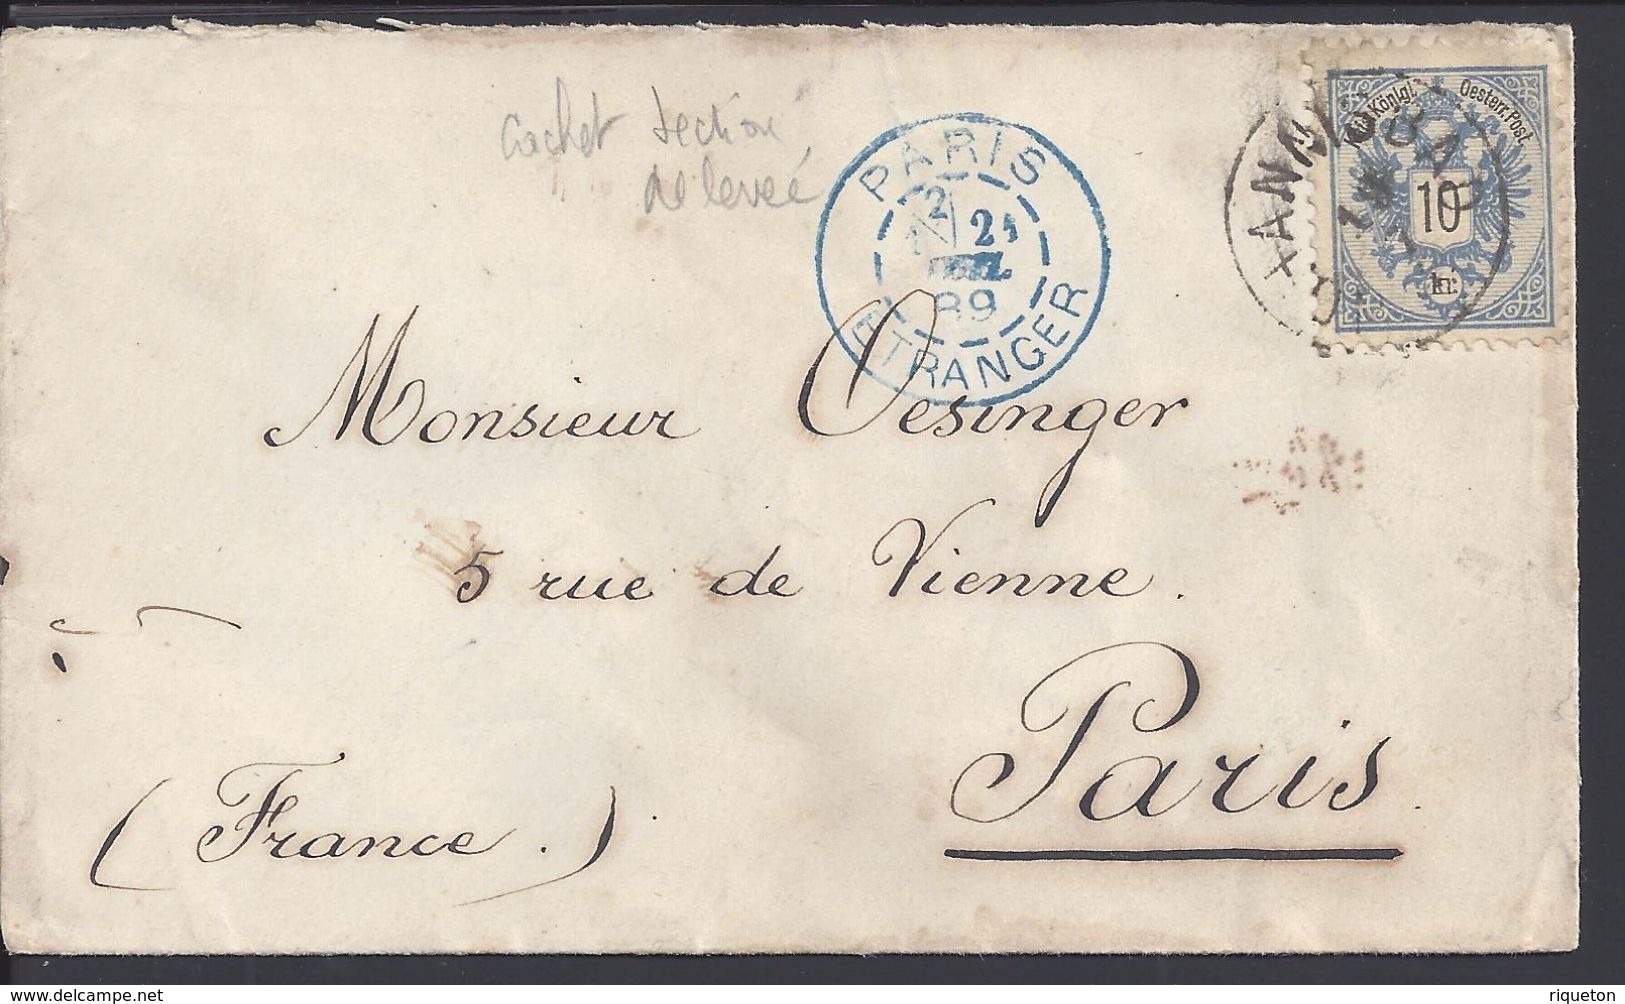 Cachet section
de levée
PARIS
2
21
89
ETRANGER
Königl. Oesterr. Post.
10
kr.
Monsieur Oesinger
5 rue de Vienne.
Paris.
(France.)
www.delcampe.net
riqueton